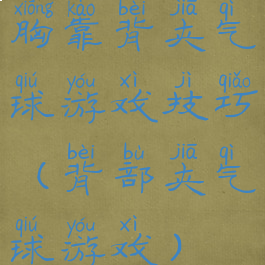 xiōng kào bèi jiā qì
胸靠背夹气
qiú yóu xì jì qiǎo
球游戏技巧
bèi bù jiā qì
(背部夹气
qiú yóu xì
球游戏)